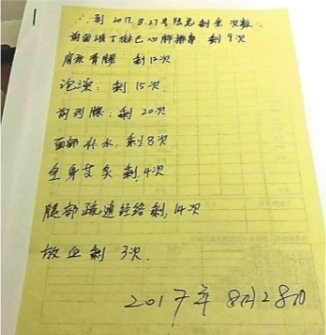 到2017.8.27号陆元剩余次数
前面项丁淋巴心肺排毒 剩9次
肩颈背腰 剩12次
泡澡: 剩15次
前列腺: 剩20次
面部补水, 剩8次
全身艾灸剩, 4次
腿部疏通经络剩, 14次
放血剩 3次.
2017年8月28日